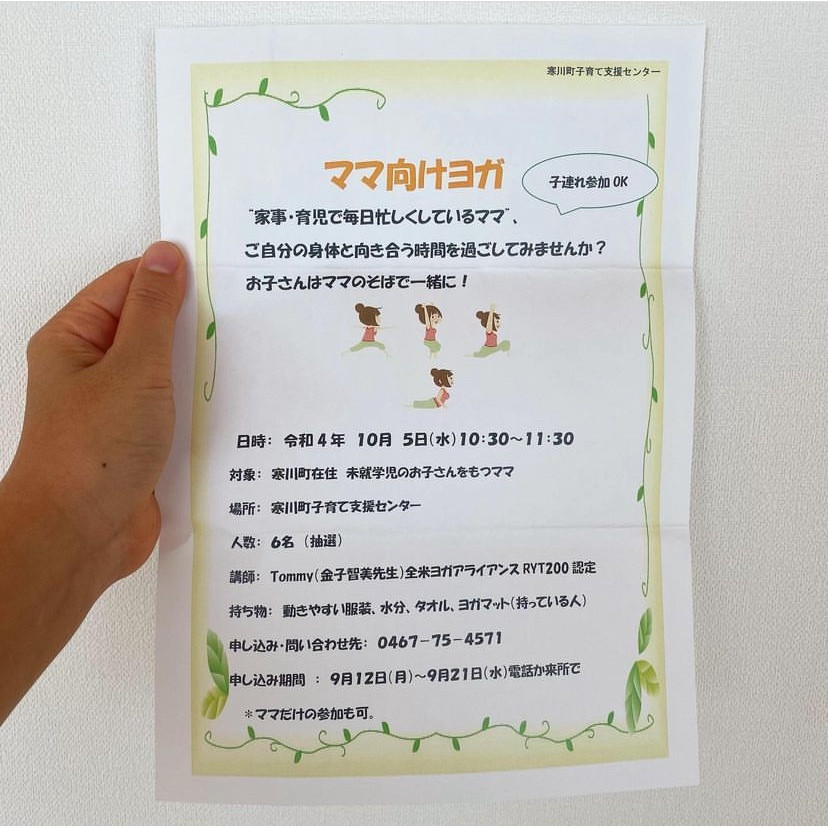 寒川町子育て支援センター
ママ向けヨガ
子連れ参加OK
"家事・育児で毎日忙しくしているママ"、
ご自分の身体と向き合う時間を過ごしてみませんか?
お子さんはママのそばで一緒に!
日時: 令和4年 10月 5日(水)10:30~11:30
対象: 寒川町在住 未就学児のお子さんをもつママ
場所: 寒川町子育て支援センター
人数: 6名 (抽選)
講師: Tommy(金子智美先生)全米ヨガアライアンスRYT200認定
持ち物: 動きやすい服装、水分、タオル、ヨガマット(持っている人)
申し込み・問い合わせ先: 0467-75-4571
申し込み期間 : 9月12日(月)~9月21日(水)電話か来所で
*ママだけの参加も可。